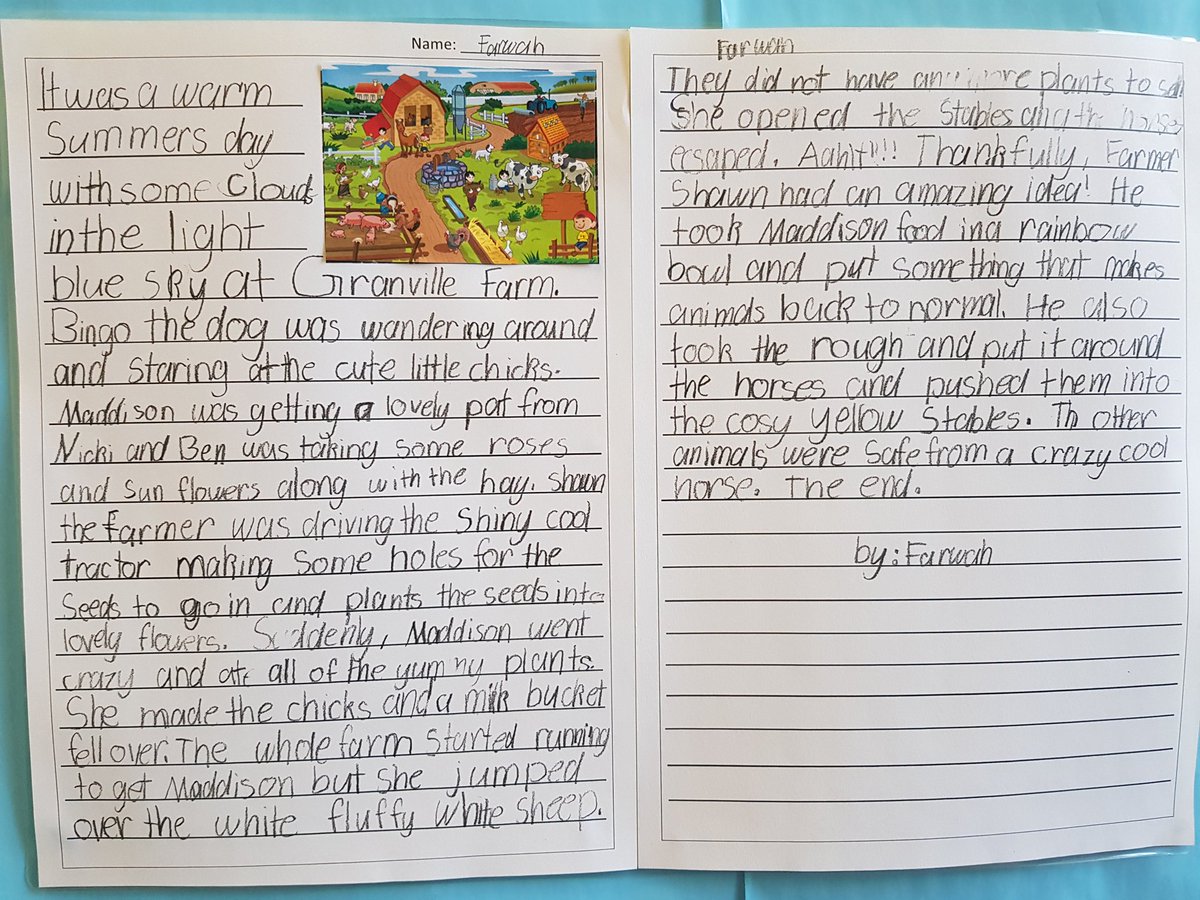 Name: Farwah
It was a warm
Summers day
with some Clouds
in the light
blue sky at Granville Farm.
Bingo the dog was wandering around
and staring at the cute little chicks.
Maddison was getting a lovely pat from
Nicki and Ben was taking some roses
and sun flowers along with the hay. Shawn
the Farmer was driving the shiny cool
tractor making some holes for the
seeds to go in and plants the seeds into
lovely flowers. Suddenly, Maddison went
crazy and ate all of the yummy plants.
She made the chicks and a milk bucket
fell over. The whole farm started running
to get Maddison but she jumped
over the white fluffy white sheep.
Farwah
They did not have any more plants to
She opened the Stables and the horse
ecsaped. Aahh!!!! Thankfully, Farmer
Shawn had an amazing idea! He
took Maddison food in a rainbow
bowl and put something that makes
animals back to normal. He also
took the rough and put it around
the horses and pushed them into
the cosy yellow stables. Th other
animals were safe from a crazy cool
horse. The end.
by: Farwah